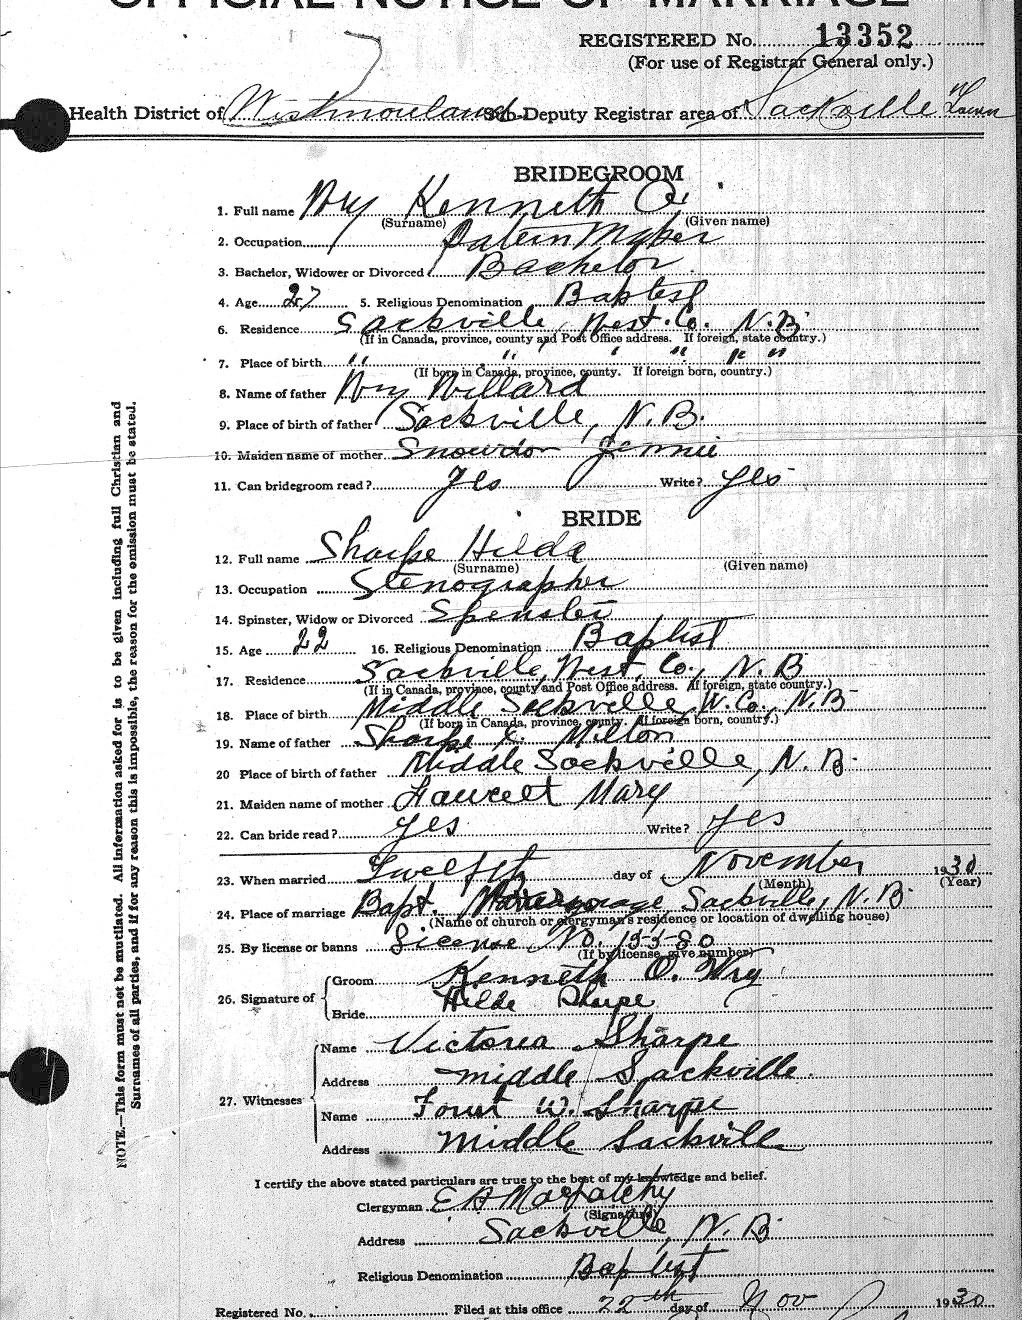 OFFICIAL NOTICE OF MARRIAGE
REGISTERED No. 13352
(For use of Registrar General only.)
Health District of Westmorland Sub-Deputy Registrar area of Sackville Town
BRIDEGROOM
1. Full name Wry Kenneth O.
(Surname) (Given name)
2. Occupation Patern Maker
3. Bachelor, Widower or Divorced Bachelor
4. Age 27 5. Religious Denomination Baptist
6. Residence Sackville, West. Co. N.B.
(If in Canada, province, county and Post Office address. If foreign, state country.)
7. Place of birth " " " " " "
(If born in Canada, province, county. If foreign born, country.)
8. Name of father Wry Willard
9. Place of birth of father Sackville, N.B.
10. Maiden name of mother Snowdon Jennie
11. Can bridegroom read? Yes Write? Yes
BRIDE
12. Full name Sharpe Hilda
(Surname) (Given name)
13. Occupation Stenographer
14. Spinster, Widow or Divorced Spenster
15. Age 22 16. Religious Denomination Baptist
17. Residence Sackville, West. Co., N.B
(If in Canada, province, county and Post Office address. If foreign, state country.)
18. Place of birth Middle Sackville, W. Co., N.B
(If born in Canada, province, county. If foreign born, country.)
19. Name of father Sharpe Milton
20 Place of birth of father Middle Sackville, N.B.
21. Maiden name of mother Fawcett Mary
22. Can bride read? Yes Write? Yes
23. When married Twelfth day of November 1930
(Month) (Year)
24. Place of marriage Bapt. Sackville, N.B.
(Name of church or clergyman's residence or location of dwelling house)
25. By license or banns License No. 13580
(If by license, give number)
26. Signature of Groom Kenneth O. Wry
Bride Hilda Sharpe
27. Witnesses Name Victoria Sharpe
Address Middle Sackville
Name W. Sharpe
Address Middle Sackville
I certify the above stated particulars are true to the best of my knowledge and belief.
Clergyman E A MacPatchy
(Signature)
Address Sackville, N.B
Religious Denomination Baptist
Registered No. Filed at this office 22th day of Nov 1930
NOTE.—This form must not be mutilated. All information asked for is to be given including full Christian and
Surnames of all parties, and if for any reason this is impossible, the reason for the emission must be stated.